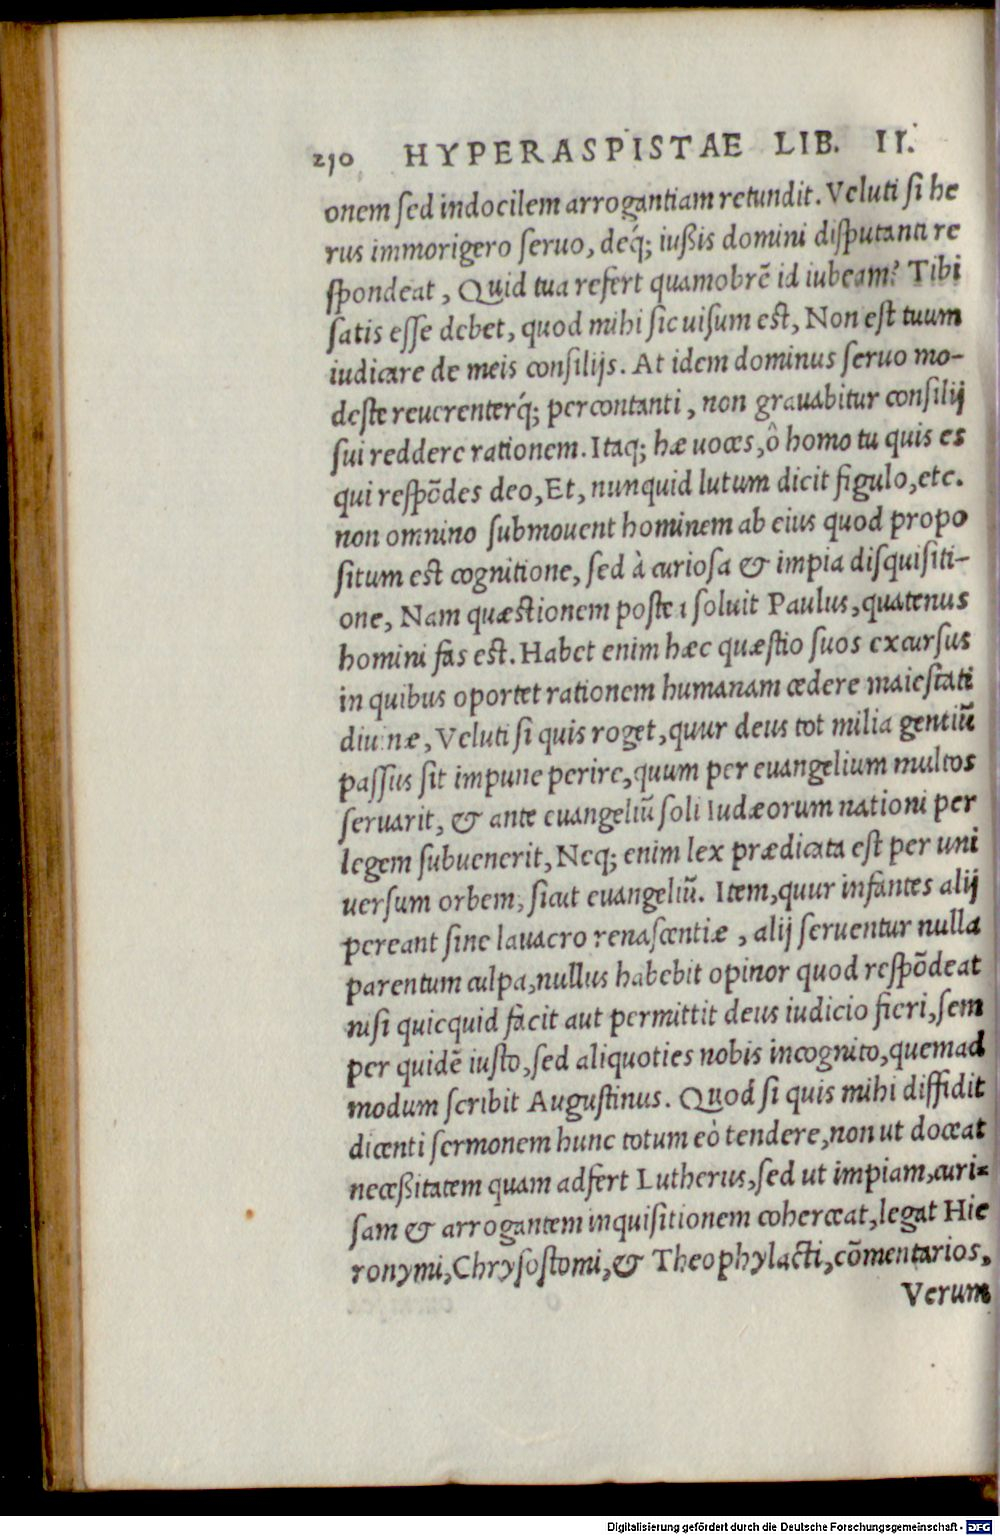 250 HYPERASPISTAE LIB. II.
onem sed indocilem arrogantiam retundit. Veluti si he
rus immorigero seruo, deq́; iußis domini disputanti re
spondeat, Quid tua refert quamobrẽ id iubeam? Tibi
satis esse debet, quod mihi sic uisum est, Non est tuum
iudicare de meis consilijs. At idem dominus seruo mo-
deste reuerenterq́; percontanti, non grauabitur consilij
sui reddere rationem. Itaq; hæ uoces, ô homo tu quis es
qui respõdes deo, Et, nunquid lutum dicit figulo, etc.
non omnino submouent hominem ab eius quod propo
situm est cognitione, sed à curiosa & impia disquisiti-
one, Nam quæstionem postea soluit Paulus, quatenus
homini fas est. Habet enim hæc quæstio suos excursus
in quibus oportet rationem humanam cedere maiestati
diuinæ, Veluti si quis roget, quur deus tot milia gentiũ
passus sit impune perire, quum per euangelium multos
seruarit, & ante euangeliũ soli Iudæorum nationi per
legem subuenerit, Neq; enim lex prædicata est per uni
uersum orbem, sicut euangeliũ. Item, quur infantes alij
pereant sine lauacro renascentiæ, alij seruentur nulla
parentum culpa, nullus habebit opinor quod respõdeat
nisi quicquid facit aut permittit deus iudicio fieri, sem
per quidẽ iusto, sed aliquoties nobis incognito, quemad
modum scribit Augustinus. Quod si quis mihi diffidit
dicenti sermonem hunc totum eò tendere, non ut doceat
necessitatem quam adfert Lutherus, sed ut impiam, curi-
sam & arrogantem inquisitionem coherceat, legat Hie
ronymi, Chrysostomi, & Theophylacti, cõmentarios,
Verum
Digitalisierung gefördert durch die Deutsche Forschungsgemeinschaft - DFG